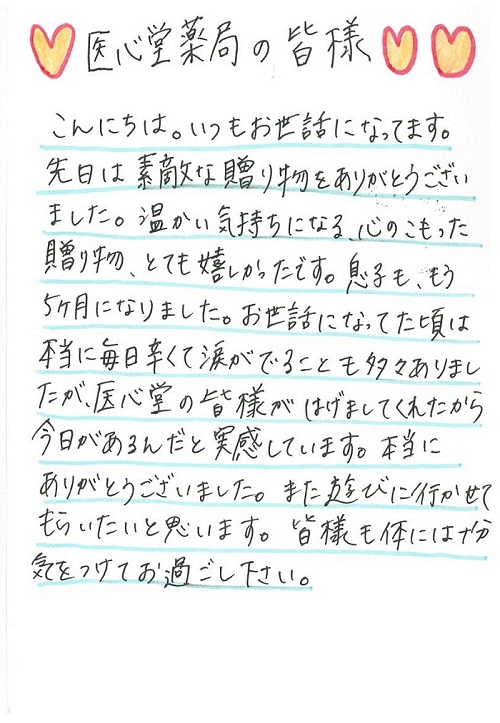 医心堂薬局の皆様
こんにちは。いつもお世話になってます。
先日は素敵な贈り物をありがとうござい
ました。温かい気持ちになる、心のこもった
贈り物、とても嬉しかったです。息子も、もう
5ヶ月になりました。お世話になってた頃は
本当に毎日辛くて涙がでることも多々ありまし
たが、医心堂の皆様がはげましてくれたから
今日があるんだと実感しています。本当に
ありがとうございました。また遊びに行かせて
もらいたいと思います。皆様も体には十分
気をつけてお過ごし下さい。